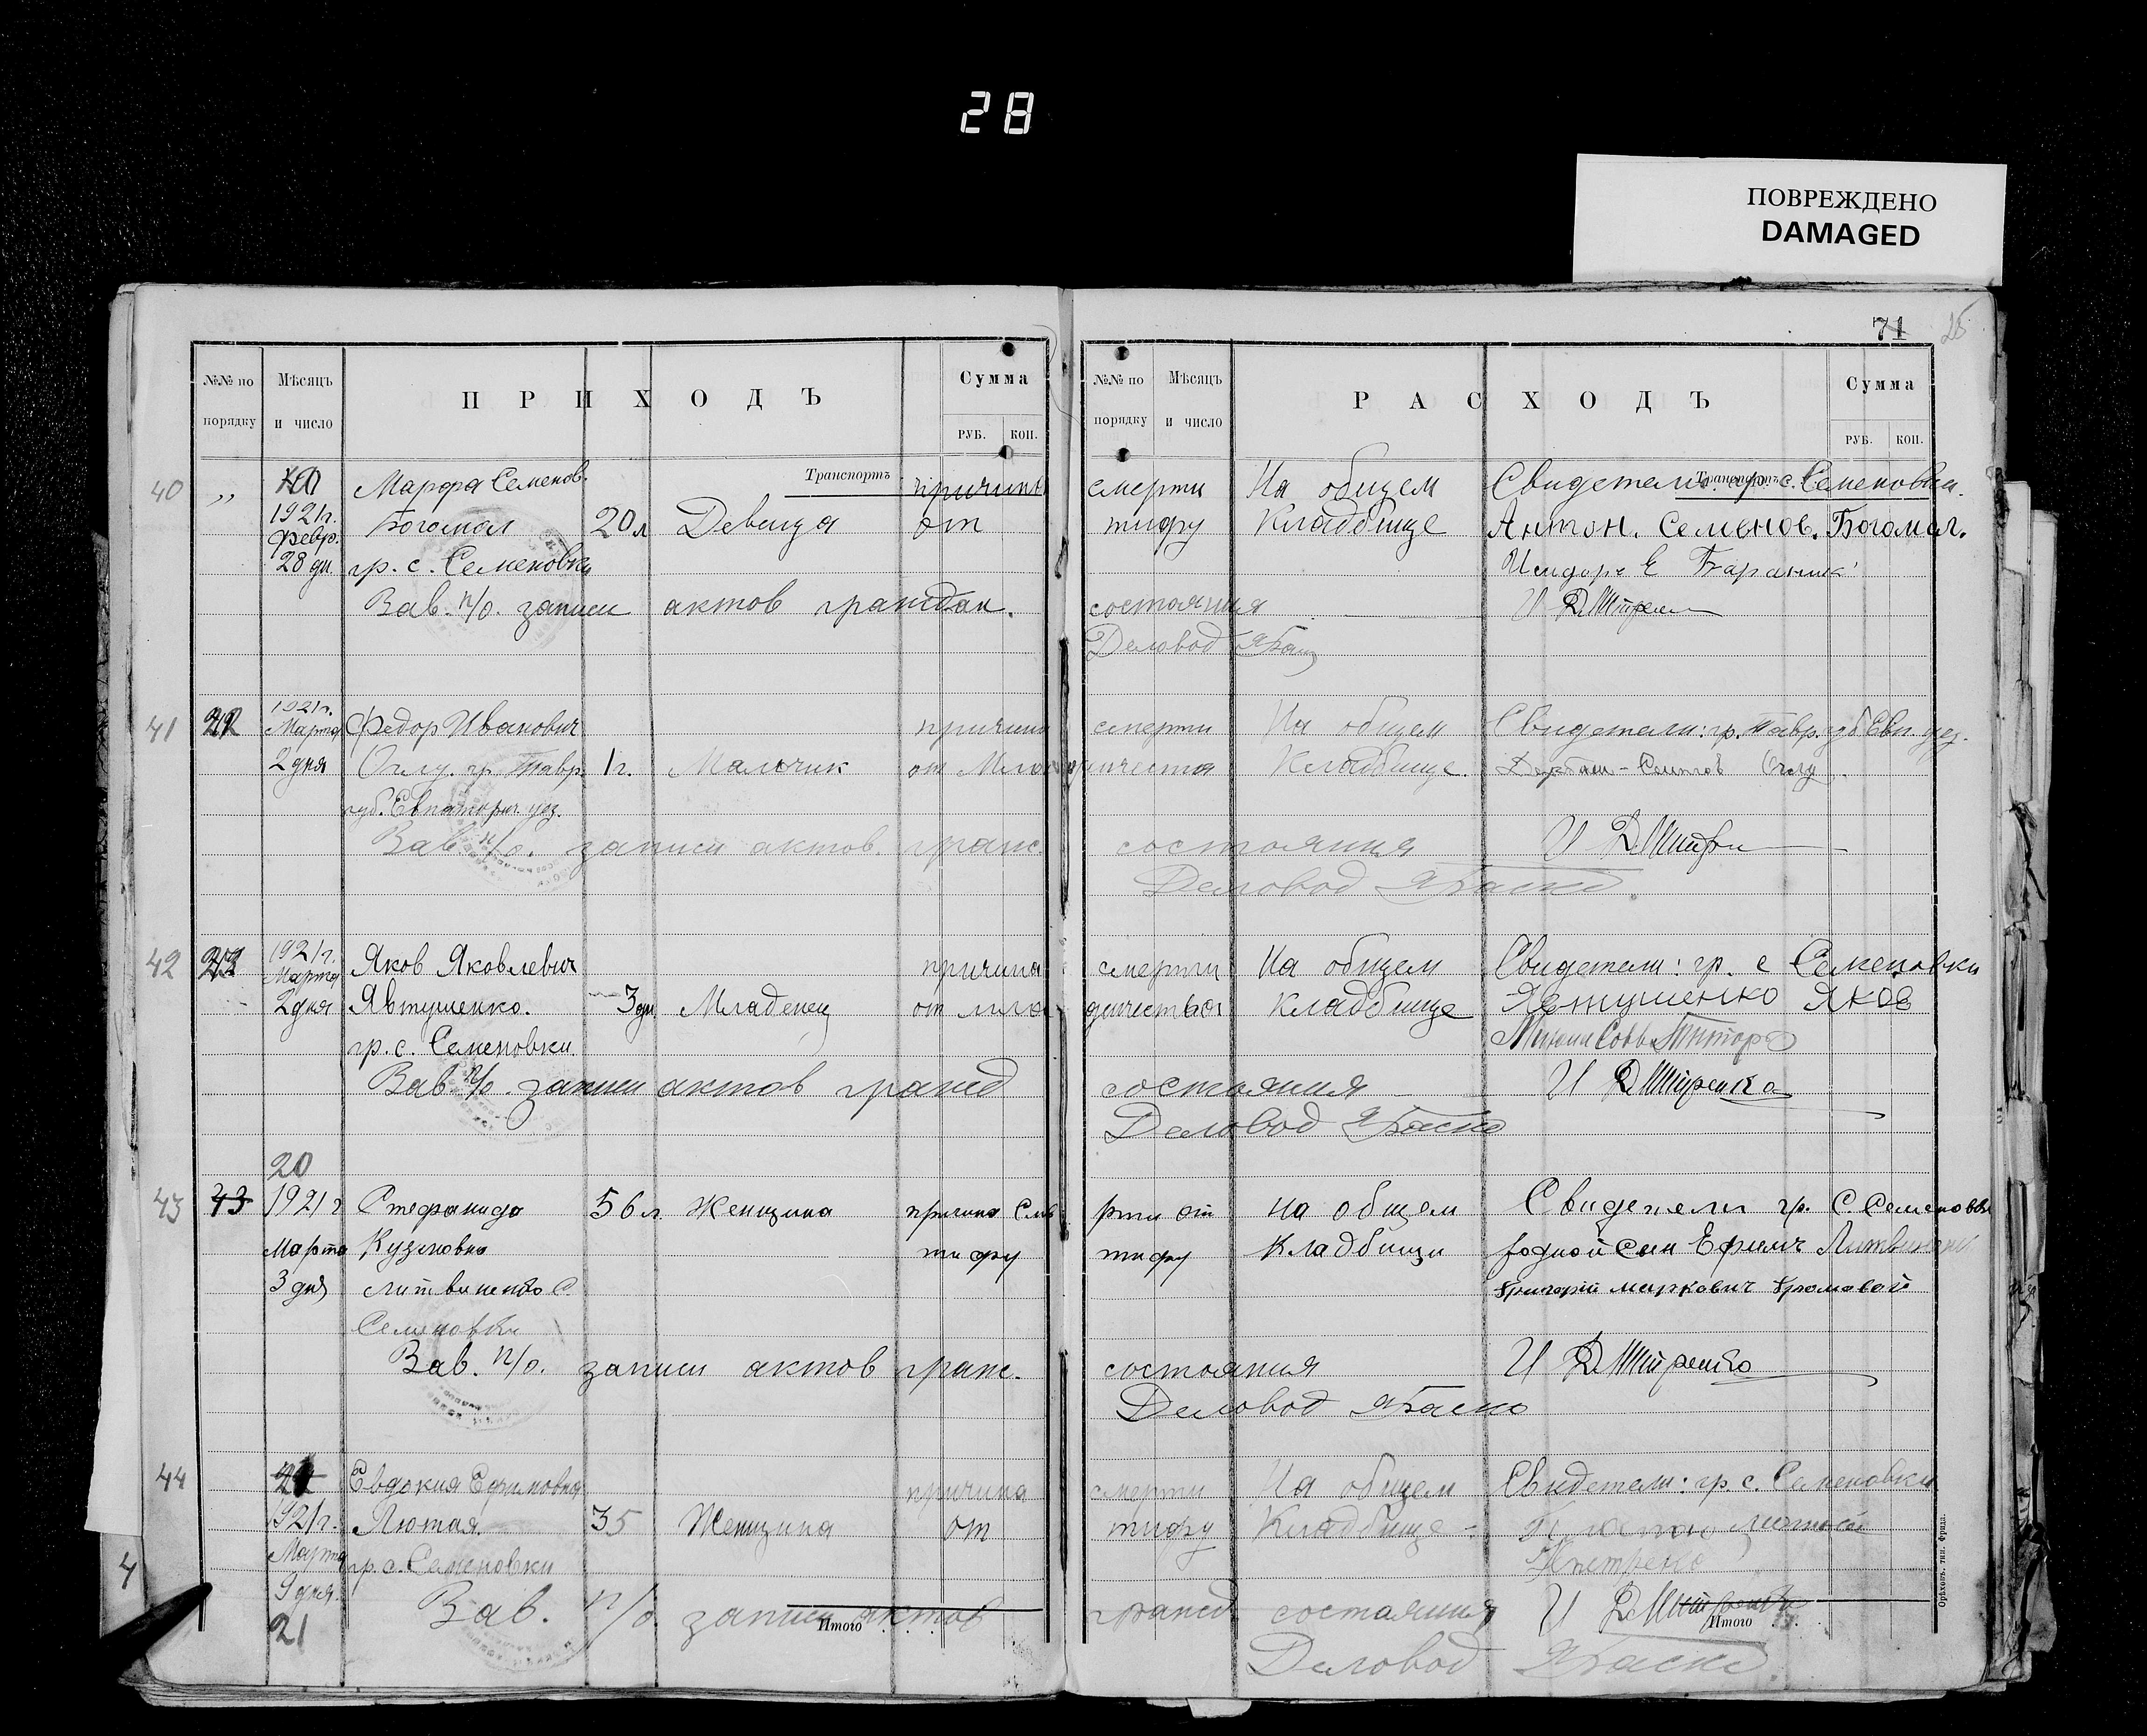 28
ПОВРЕЖДЕНО
DAMAGED
71
25
№№ по порядку
Мѣсяцъ и число
ПРИХОДЪ
Сумма
РУБ. КОП.
№№ по порядку
Мѣсяцъ и число
РАСХОДЪ
Сумма
РУБ. КОП.
Транспортъ
Транспортъ
40 " Марфа Семенов. причина смерти На общем Свидетели: гр. с. Семеновки.
1921г. Богомол 20 л Девица от тифу Кладбище Антон. Семенов. Богомол.
Февр.
28 дн. гр. с. Семеновки
Зав. п/о. записи актов граждан. состояния И
Деловод
41 1921г.
Марта Федор Иванович причина смерти На общем Свидетели: гр. Тавр. губ Евп. уез.
2 дня гр. Тавр. 1 г. Мальчик от Кладбище.
губ. Евпаторич. уез.
Зав. п/о. записи актов. гражс. состояния И
Деловод
42 1921г.
Марта Яков Яковлевич причина смерти На общем Свидетели: гр. с Семеновки
2 дня Явтушенко. 3 дн. Младенец от Кладбище Явтушенко Яков
гр. с. Семеновки
Зав. п/о. записи актов гражд состояния И
Деловод
20
43 43 1921 г Стефанида 56 л. Женщина причина Сме рти от На общем Свидетели гр. С Семеновки
Марта Кузмовна тифу тифу Кладбищи родной сын Ефим Литвиненко
3 дня Литвиненко С. Григорий маркович Громовой
Семеновки
Зав. п/о. записи актов гражс. состояния И
Деловод
44 Евдокия Ефимовна причина смерти На общем Свидетели: гр. с. Семеновки
1921г. Лютая. 35 Женщина от тифу Кладбище -
Марта гр. с. Семеновки
9 дня.
Зав. п/о записи актов гражд состояния И
21
Деловод
Итого
Итого
4
Орѣховъ. тип. Фрида.